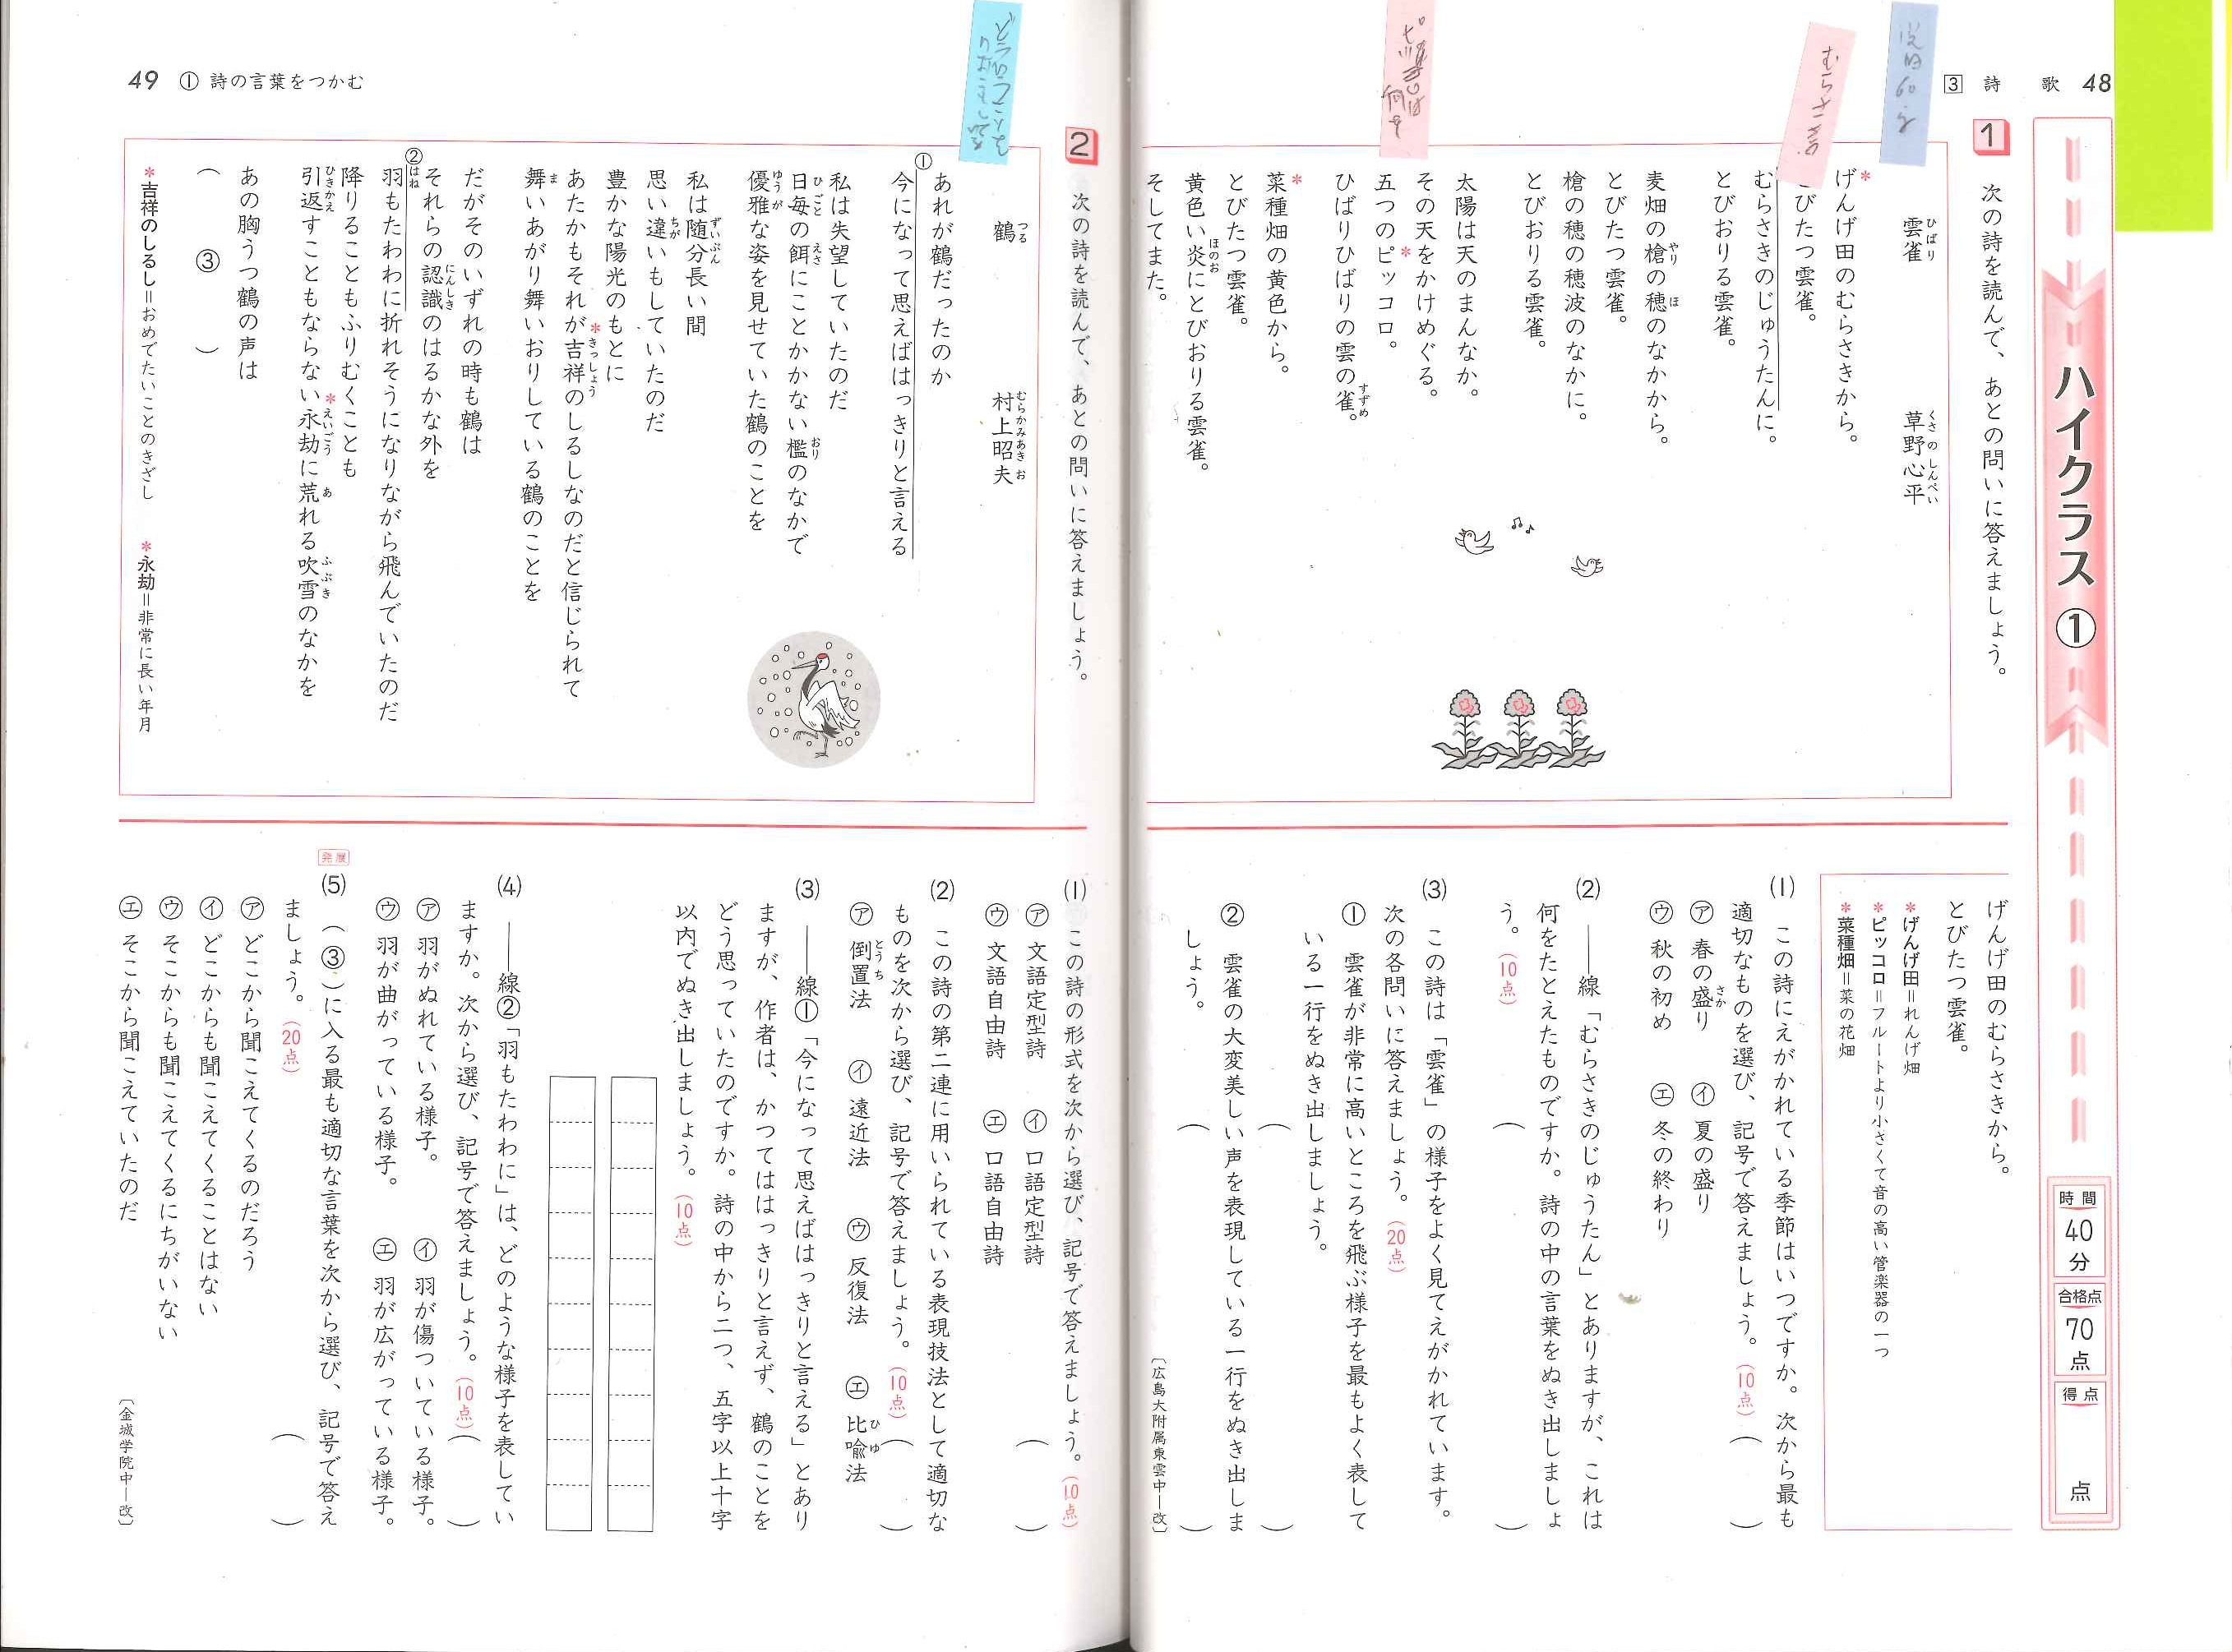 3 詩 歌 48
ハイクラス ①
時間 40分
合格点 70点
得点 点
1 次の詩を読んで、あとの問いに答えましょう。
雲雀 草野心平
げんげ田のむらさきから。
とびたつ雲雀。
むらさきのじゅうたんに。
とびおりる雲雀。
麦畑の槍の穂のなかから。
とびたつ雲雀。
槍の穂の穂波のなかに。
とびおりる雲雀。
太陽は天のまんなか。
その天をかけめぐる。
五つのピッコロ。
ひばりひばりの雲の雀。
菜種畑の黄色から。
とびたつ雲雀。
黄色い炎にとびおりる雲雀。
そしてまた。
げんげ田のむらさきから。
とびたつ雲雀。
*げんげ田=れんげ畑
*ピッコロ=フルートより小さくて音の高い管楽器の一つ
*菜種畑=菜の花畑
(1) この詩にえがかれている季節はいつですか。次から最も
適切なものを選び、記号で答えましょう。(10点)( )
㋐ 春の盛り ㋑ 夏の盛り
㋒ 秋の初め ㋓ 冬の終わり
(2) ――線「むらさきのじゅうたん」とありますが、これは
何をたとえたものですか。詩の中の言葉をぬき出しましょ
う。(10点)( )
(3) この詩は「雲雀」の様子をよく見てえがかれています。
次の各問いに答えましょう。(20点)
① 雲雀が非常に高いところを飛ぶ様子を最もよく表して
いる一行をぬき出しましょう。
( )
② 雲雀の大変美しい声を表現している一行をぬき出しま
しょう。
( )
〔広島大附属東雲中―改〕
49 ① 詩の言葉をつかむ
2 次の詩を読んで、あとの問いに答えましょう。
鶴 村上昭夫
あれが鶴だったのか
①今になって思えばはっきりと言える
私は失望していたのだ
日毎の餌にことかかない檻のなかで
優雅な姿を見せていた鶴のことを
私は随分長い間
思い違いもしていたのだ
豊かな陽光のもとに
あたかもそれが吉祥のしるしなのだと信じられて
舞いあがり舞いおりしている鶴のことを
だがそのいずれの時も鶴は
それらの認識のはるかな外を
②羽もたわわに折れそうになりながら飛んでいたのだ
降りることもふりむくことも
引返すこともならない永劫に荒れる吹雪のなかを
あの胸うつ鶴の声は
( ③ )
*吉祥のしるし=おめでたいことのきざし *永劫=非常に長い年月
(1) この詩の形式を次から選び、記号で答えましょう。(10点)
㋐ 文語定型詩 ㋑ 口語定型詩
㋒ 文語自由詩 ㋓ 口語自由詩 ( )
(2) この詩の第二連に用いられている表現技法として適切な
ものを次から選び、記号で答えましょう。(10点)( )
㋐ 倒置法 ㋑ 遠近法 ㋒ 反復法 ㋓ 比喩法
(3) ――線①「今になって思えばはっきりと言える」とあり
ますが、作者は、かつてははっきりと言えず、鶴のことを
どう思っていたのですか。詩の中から二つ、五字以上十字
以内でぬき出しましょう。(10点)
(4) ――線②「羽もたわわに」は、どのような様子を表してい
ますか。次から選び、記号で答えましょう。(10点)( )
㋐ 羽がぬれている様子。 ㋑ 羽が傷ついている様子。
㋒ 羽が曲がっている様子。 ㋓ 羽が広がっている様子。
発展
(5) (③)に入る最も適切な言葉を次から選び、記号で答え
ましょう。(20点) ( )
㋐ どこから聞こえてくるのだろう
㋑ どこからも聞こえてくることはない
㋒ そこからも聞こえてくるにちがいない
㋓ そこから聞こえていたのだ
〔金城学院中―改〕